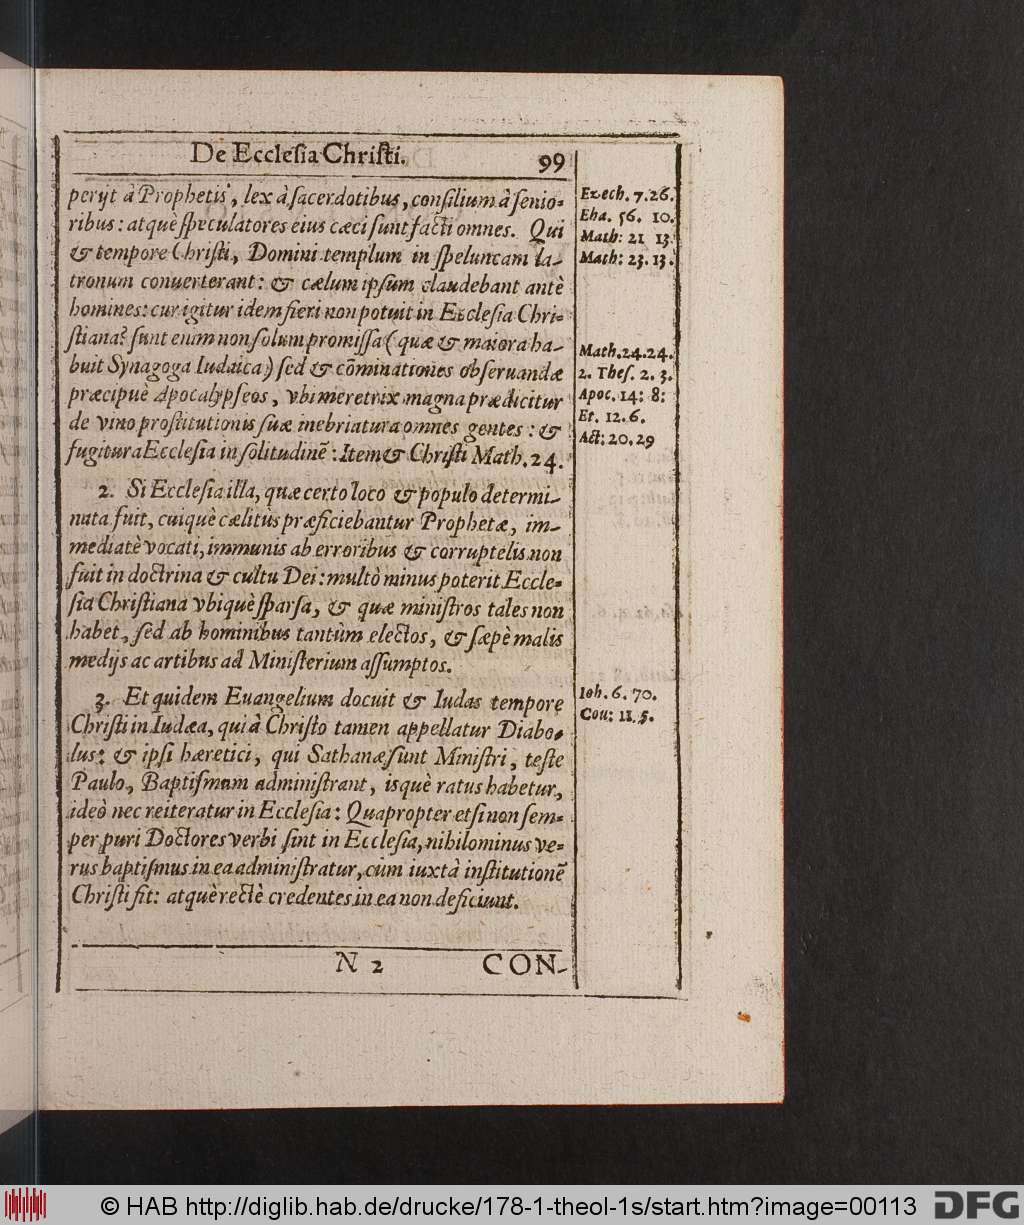 De Ecclesia Christi. 99
perijt à Prophetis, lex à sacerdotibus, consilium à senio-
ribus: atquè speculatores eius cæci sunt facti omnes. Qui
& tempore Christi, Domini templum in speluncam la-
tronum conuerterant: & cælum ipsum claudebant antè
homines: cur igitur idem fieri non potuit in Ecclesia Chri-
stiana? sunt enim non solum promissa (quæ & maiora ha-
buit Synagoga Iudaica) sed & cōminationes obseruandæ
præcipuè Apocalypseos, vbi meretrix magna prædicitur
de vino prostitutionis suæ inebriatura omnes gentes: &
fugitura Ecclesia in solitudinē: Item & Christi Math. 24.
2. Si Ecclesia illa, quæ certo loco & populo determi-
nata fuit, cuiquè cælitùs præficiebantur Prophetæ, im-
mediatè vocati, immunis ab erroribus & corruptelis non
fuit in doctrina & cultu Dei: multò minus poterit Eccle-
sia Christiana vbiquè sparsa, & quæ ministros tales non
habet, sed ab hominibus tantùm electos, & sæpè malis
medijs ac artibus ad Ministerium assumptos.
3. Et quidem Euangelium docuit & Iudas tempore
Christi in Iudæa, qui à Christo tamen appellatur Diabo-
lus: & ipsi hæretici, qui Sathanæ sunt Ministri, teste
Paulo, Baptismum administrant, isquè ratus habetur,
ideò nec reiteratur in Ecclesia: Quapropter etsi non sem-
per puri Doctores verbi sint in Ecclesia, nihilominus ve-
rus baptismus in ea administratur, cùm iuxtà institutionē
Christi fit: atquè rectè credentes in ea non deficiunt.
N 2 CON-
Ezech. 7. 26.
Eha. 56. 10.
Math: 21 13.
Math: 23. 13.
Math. 24. 24.
2. Thes. 2. 3.
Apoc. 14: 8:
Et. 12. 6.
Act: 20. 29
Ioh. 6. 70.
Cou: 11. 5.
© HAB http://diglib.hab.de/drucke/178-1-theol-1s/start.htm?image=00113 DFG